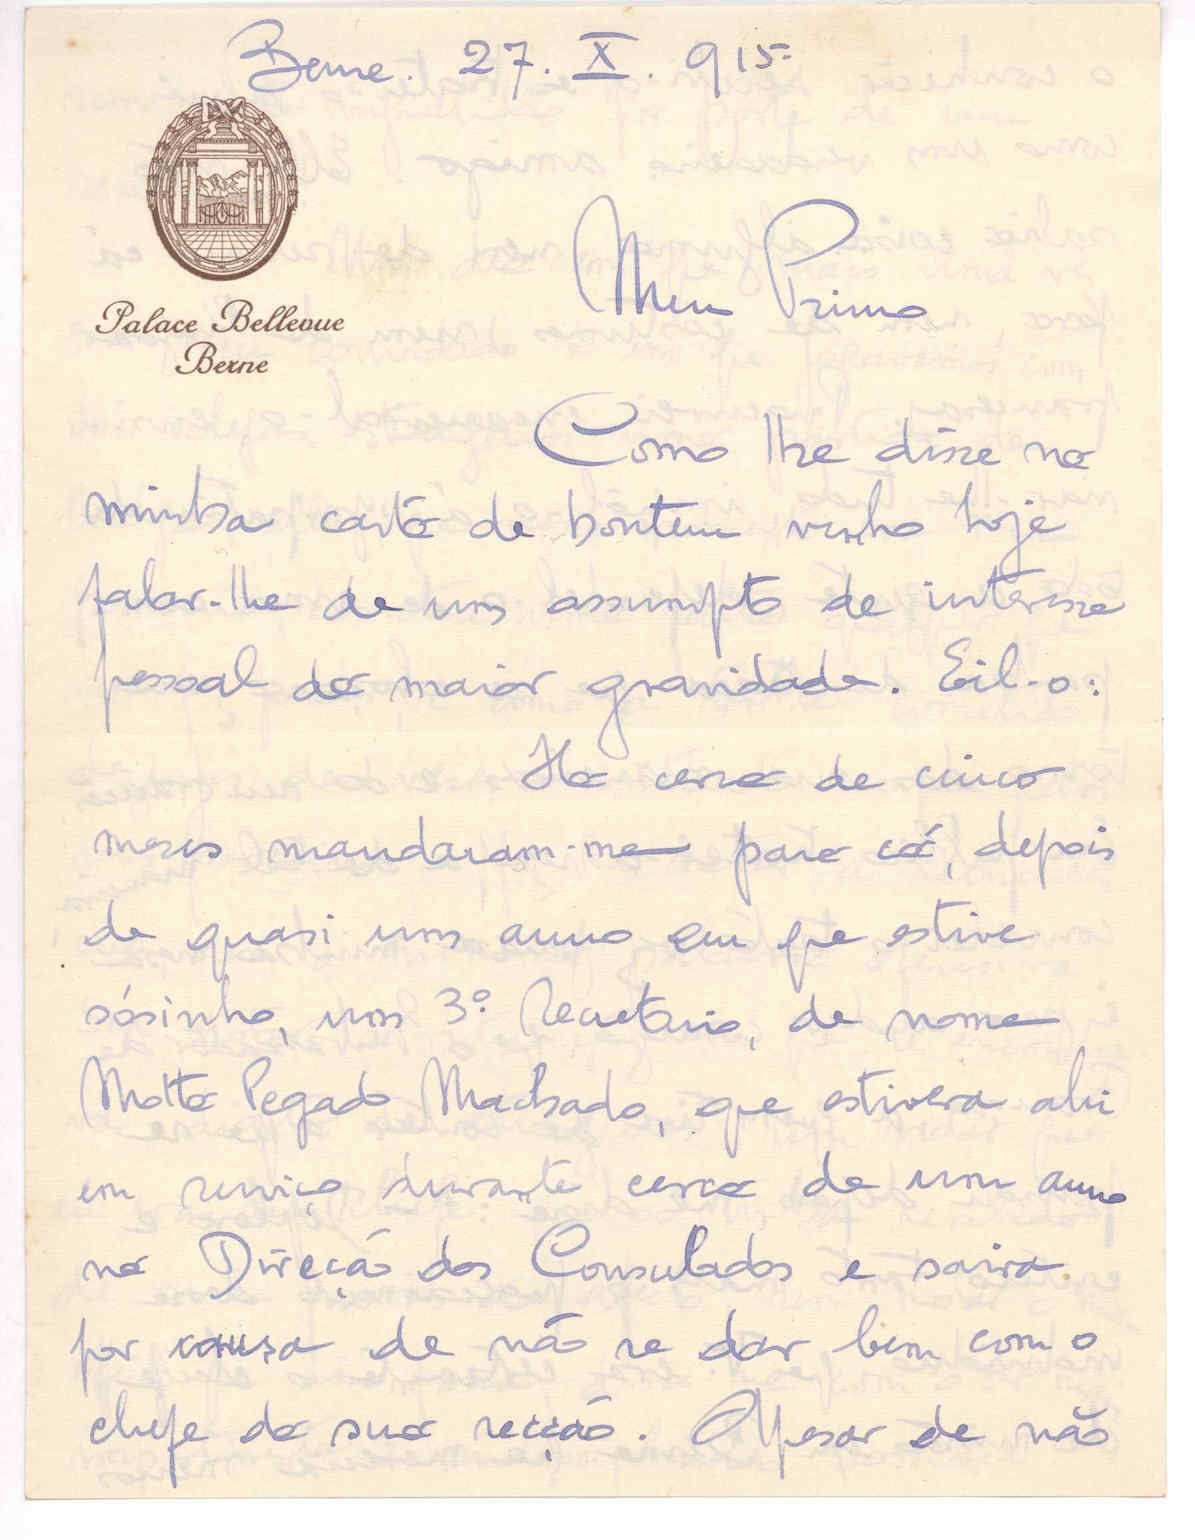 Berne. 27. X. 915
Palace Bellevue
Berne
Meu Primo
Como lhe disse na
minha carta de hontem venho hoje
falar-lhe de um assumpto de interesse
pessoal da maior gravidade. Eil-o:
Ha cerca de cinco
meses mandaram-me para cá, depois
de quasi um anno em que estive
sósinho, um 3º Secretario, de nome
Motta Pegado Machado, que estivera ahi
em serviço durante cerca de um anno
na Direcção dos Consulados e saira
por causa de não se dar bem com o
chefe da sua secção. Apesar de não